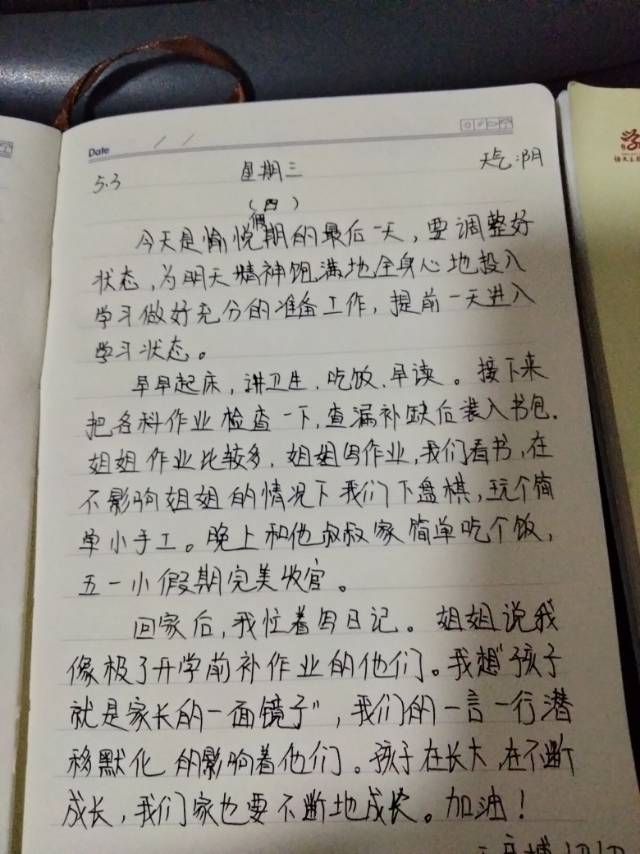 Date / /
5.3 星期三 天气:阴
(四)
今天是愉悦假期的最后一天,要调整好
状态,为明天精神饱满地全身心地投入
学习做好充分的准备工作,提前一天进入
学习状态。
早早起床,讲卫生,吃饭,早读。接下来
把各科作业检查一下,查漏补缺后装入书包.
姐姐作业比较多,姐姐写作业,我们看书,在
不影响姐姐的情况下我们下盘棋,玩个简
单小手工。晚上和他叔叔家简单吃个饭,
五一小假期完美收官。
回家后,我忙着写日记。姐姐说我
像极了开学前补作业的他们。我想"孩子
就是家长的一面镜子",我们的一言一行潜
移默化的影响着他们。孩子在长大,在不断
成长,我们家也要不断地成长。加油!
学